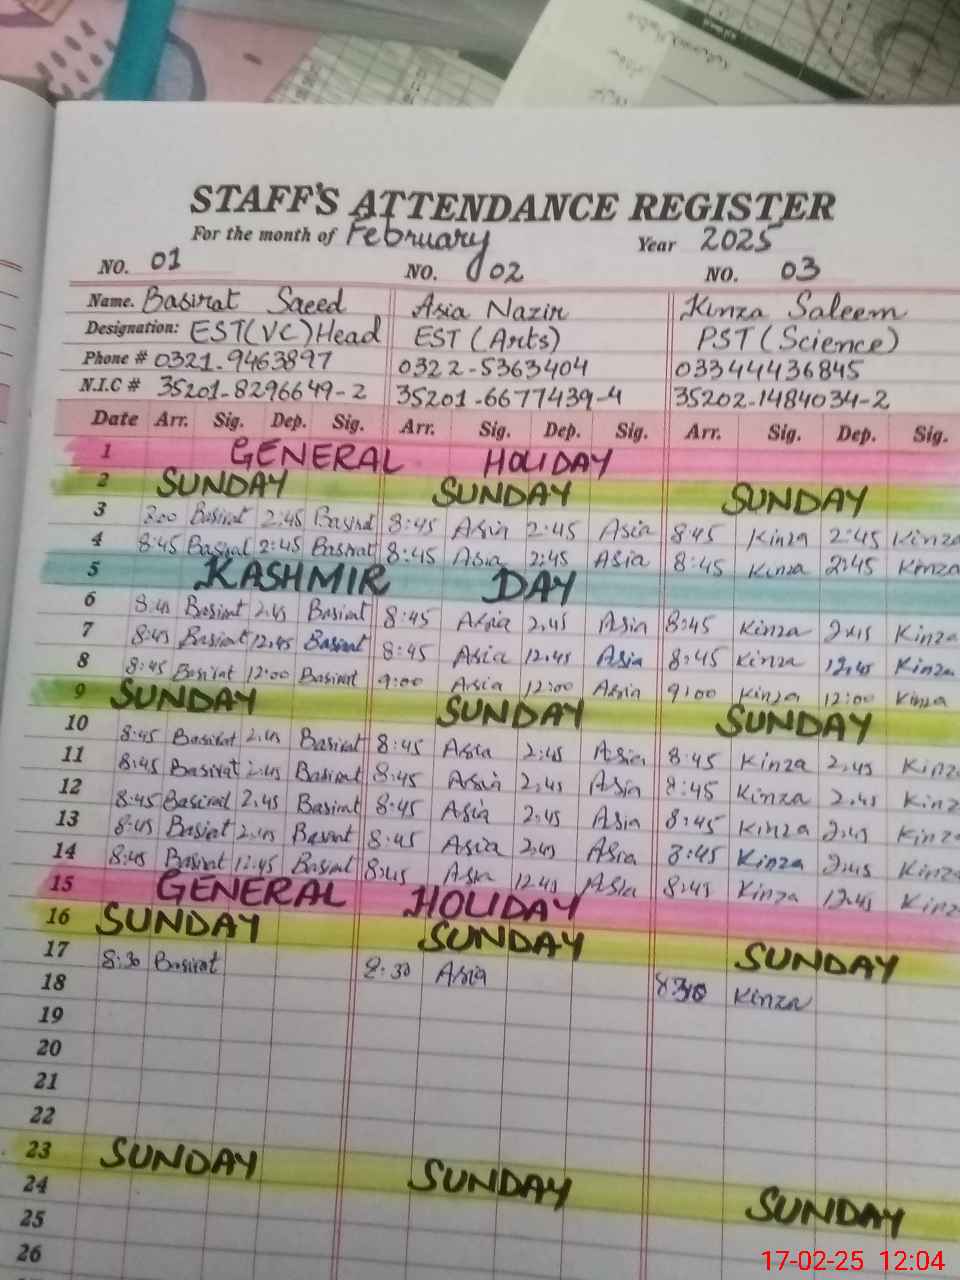 STAFF'S ATTENDANCE REGISTER
For the month of February Year 2025
NO. 01 NO. 02 NO. 03
Name. Basirat Saeed Asia Nazir Kinza Saleem
Designation: EST(VC)Head EST (Arts) PST (Science)
Phone # 0321-9463897 0322-5363404 03344436845
N.I.C # 35201-8296649-2 35201-6677439-4 35202-1484034-2
Date Arr. Sig. Dep. Sig. Arr. Sig. Dep. Sig. Arr. Sig. Dep. Sig.
1 GENERAL HOLIDAY
2 SUNDAY SUNDAY SUNDAY
3 8:00 Basirat 2:45 Basirat 8:45 Asia 2:45 Asia 8:45 Kinza 2:45 Kinza
4 8:45 Basirat 2:45 Basirat 8:45 Asia 2:45 Asia 8:45 Kinza 2:45 Kinza
5 KASHMIR DAY
6 8:45 Basirat 2:45 Basirat 8:45 Asia 2:45 Asia 8:45 Kinza 2:45 Kinza
7 8:45 Basirat 12:45 Basirat 8:45 Asia 12:45 Asia 8:45 Kinza 12:45 Kinza
8 8:45 Basirat 12:00 Basirat 9:00 Asia 12:00 Asia 9:00 Kinza 12:00 Kinza
9 SUNDAY SUNDAY SUNDAY
10 8:45 Basirat 2:45 Basirat 8:45 Asia 2:45 Asia 8:45 Kinza 2:45 Kinz
11 8:45 Basirat 2:45 Basirat 8:45 Asia 2:45 Asia 8:45 Kinza 2:45 Kinz
12 8:45 Basirat 2:45 Basirat 8:45 Asia 2:45 Asia 8:45 Kinza 2:45 Kinz
13 8:45 Basirat 2:45 Basirat 8:45 Asia 2:45 Asia 8:45 Kinza 2:45 Kinz
14 8:45 Basirat 12:45 Basirat 8:45 Asia 12:45 Asia 8:45 Kinza 12:45 Kinz
15 GENERAL HOLIDAY
16 SUNDAY SUNDAY SUNDAY
17 8:30 Basirat 8:30 Asia 8:30 Kinza
18
19
20
21
22
23 SUNDAY SUNDAY SUNDAY
24
25
26
17-02-25 12:04